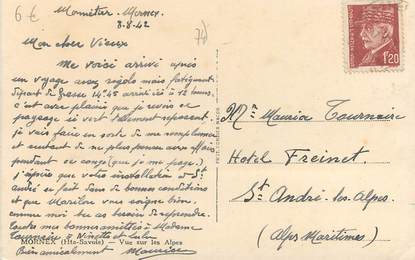 6 €
Mornex
8.8.42
70
Mon cher Vieux
Me voici arrivé après
un voyage assez rigolo mais fatigant.
Départ de Grasse 14h45 arrivé ici à 12 heures.
c'est avec plaisir que je revois ce
paysage si vert tellement reposant.
je vais faire en sorte de me remplumer
et surtout de ne plus penser aux affaires
pendant ce congé (que je me paye.)
J'espère que votre installation à St
André se fait dans de bonnes conditions
et que Marilou vous soigne bien,
comme moi tu as besoin de reprendre.
toutes mes bonnes amitiés à Madame
Tournaire à Ninette et Lulu
Bien amicalement Maurice
MORNEX (Hte-Savoie) — Vue sur les Alpes
1F20
Mr Maurice Tournaire
Hotel Freinet
St André-les-Alpes
(Alpes Maritimes)